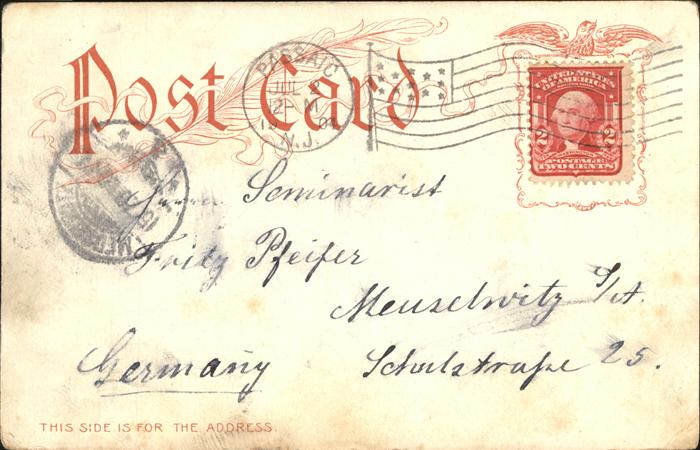 Post Card
PASSAIC
JUL
12-M
N.J.
UNITED STATES
OF AMERICA
2 2
POSTAGE
TWO CENTS
Herrn Seminarist
Fritz Pfeifer
Meuselwitz S/A.
Germany
Schulstraße 25.
THIS SIDE IS FOR THE ADDRESS.